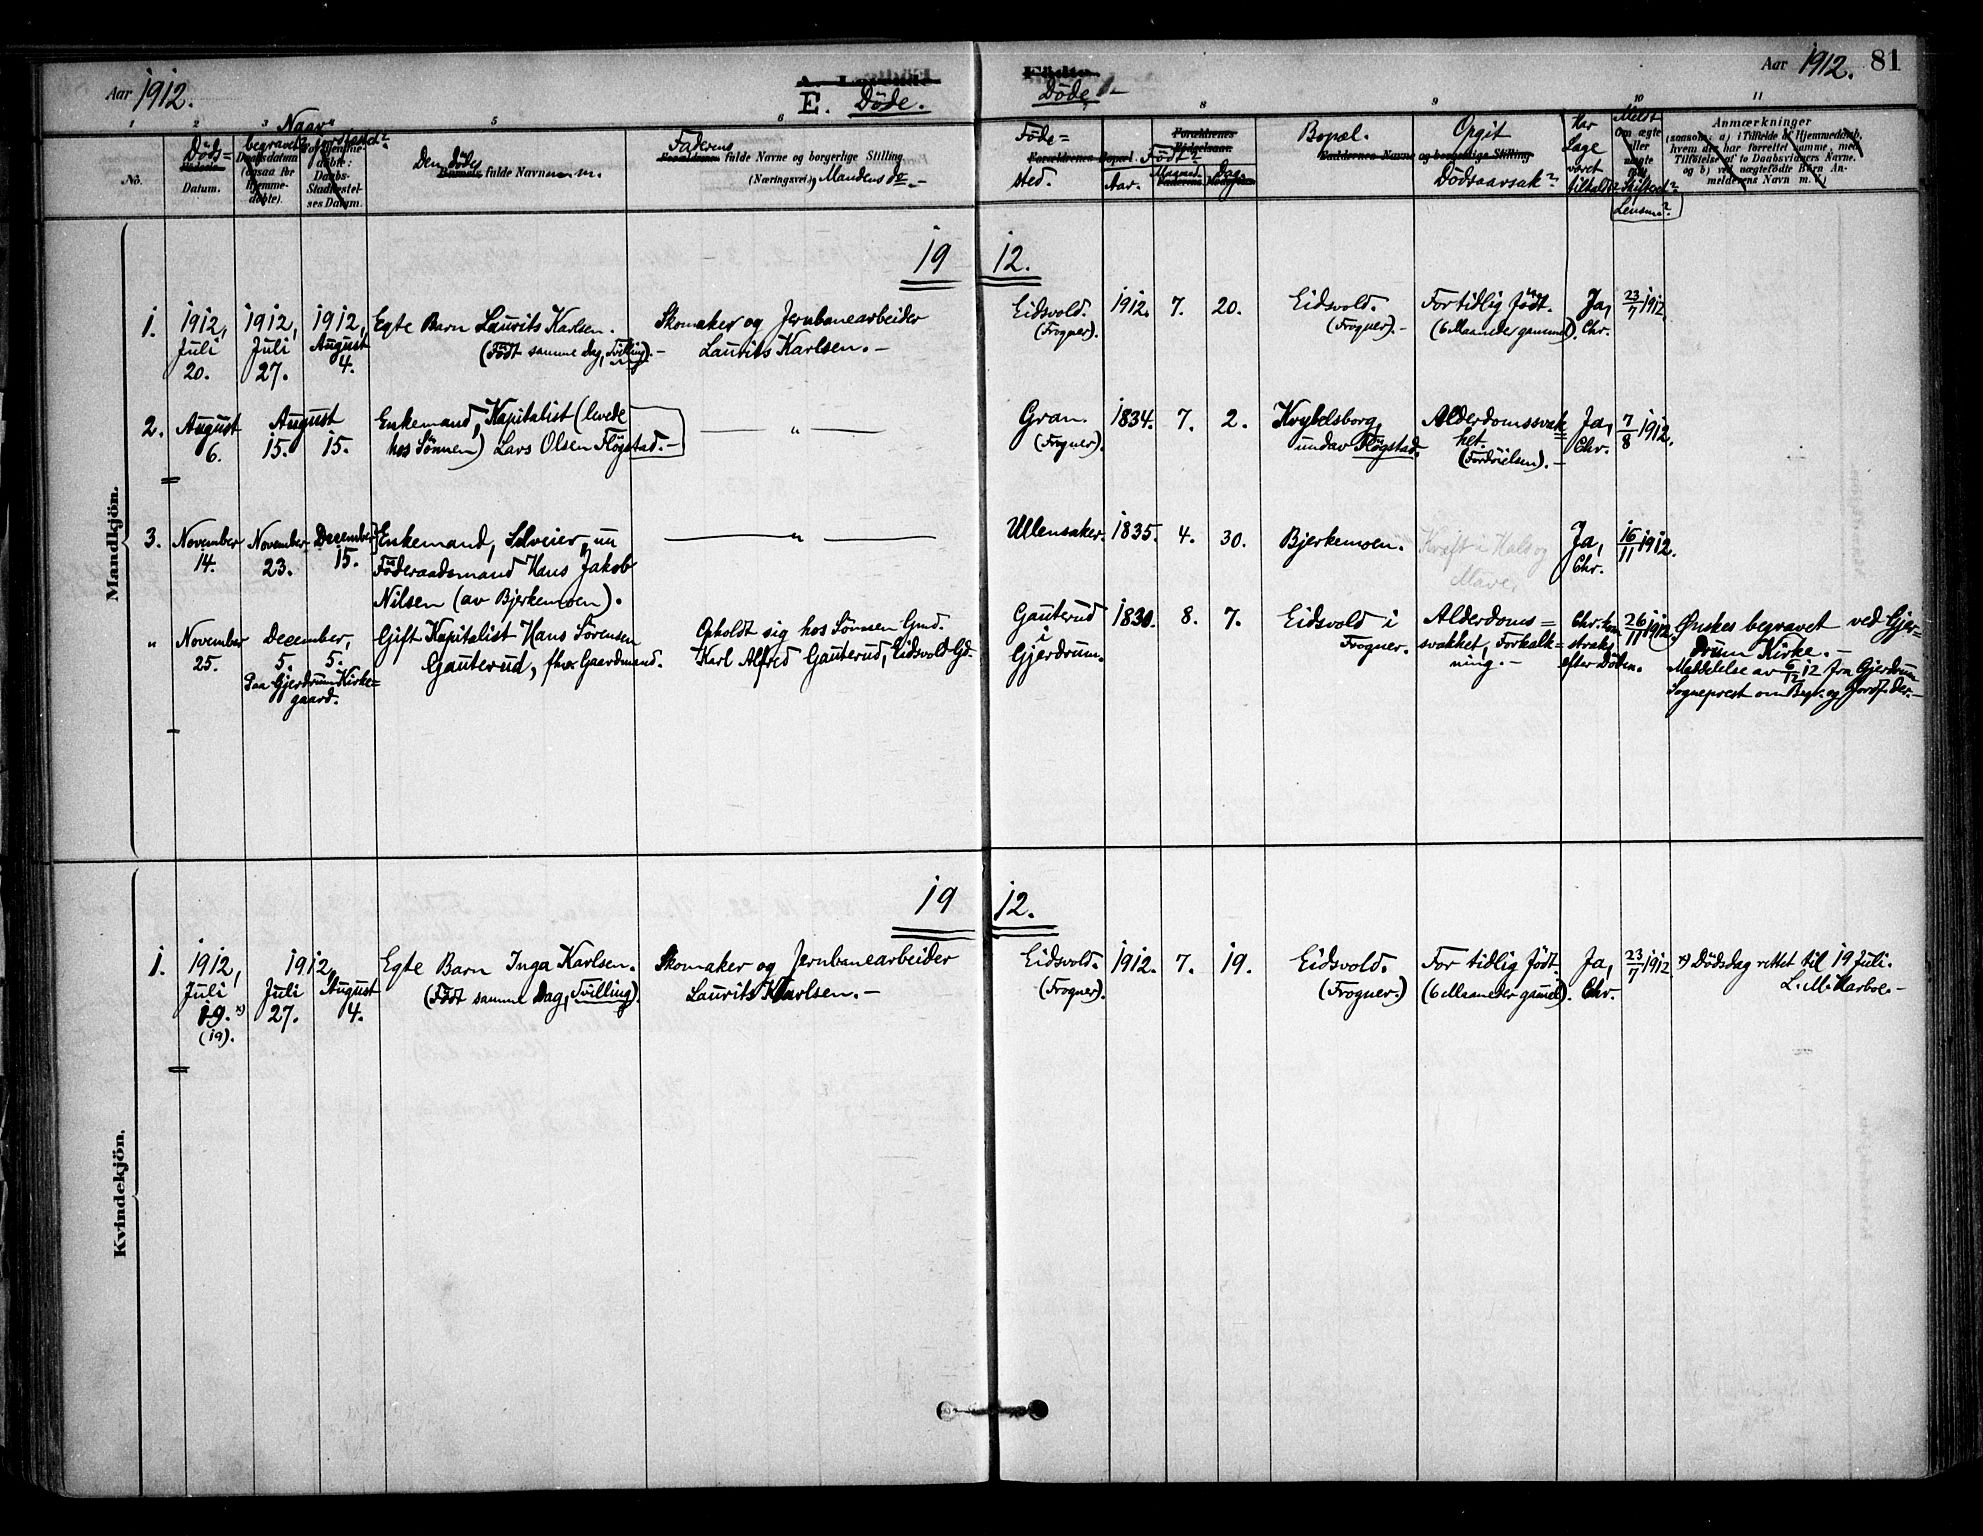 Aar 1912.
E. Døde.
Døde
Aar 1912. 81
1 2 3 5 6 8 9 10 11
Naar
No.
Døds=
Datum.
begravet?
jordfæstet?
Den dødes fulde Navn m. m.
Faderens fulde Navne og borgerlige Stilling
(Næringsvei), Mandens do.-
Føde=
sted.
Født?
Aar.
Maaned.
Dag.
Bopæl.
Opgit
Dødsaarsak?
Har
Læge
været
tilkaldt?
Meldt
Skifteret?
Lensm.?
Anmærkninger
Mandkjön.
19 12.
1. 1912, Juli 20.
1912, Juli 27.
1912, August 4.
Egte Barn Laurits Karlsen.
(Født samme dag, Tvilling).-
Skomaker og Jernbanearbeider
Laurits Karlsen.-
Eidsvold.
(Frogner).
1912. 7. 20.
Eidsvold.
(Frogner).-
For tidlig født.
(6 Maaneder gammel).
Ja,
Chr.
23/7 1912.
2. August 6.
August
15. 15.
Enkemand, Kapitalist (levede
hos Sønnen) Lars Olsen Fløgstad.-
— " —
Gran.
(Frogner).
1834. 7. 2.
Kvybelsborg,
undav Fløgstad.
Alderdomssvak=
het.
Ja,
Chr.
7/8 1912.
3. November 14.
November 23.
December 15.
Enkemand, Selveier, nu
Føderaadsmand Hans Jakob
Nilsen (av Bjerkemoen).
— " —
Ullensaker.
1835. 4. 30.
Bjerkemoen.
Kræft i Hals og
Mave.
Ja,
Chr.
16/11 1912.
" November 25.
December,
5. 5.
Paa Gjerdrum Kirke=
gaard.
Gift Kapitalist Hans Sørensen
Gauterud, fhv. Gaardmand.
Opholdt sig hos Sønnen Gmd.
Karl Alfred Gauterud, Eidsvold Gd.
Gauterud
i
Gjerdrum.
1830. 8. 7.
Eidsvold i
Frogner.
Alderdoms=
svakhet, Forkalk=
ning.-
Chr. kom
straks
efter Døden.
26/11 1912.
Ønskes begravet ved Gjer=
drum Kirke.-
Meddelelse av 6/12 12 fra Gjerdrum
Sogneprest om Begr. og Jordf. der.-
Kvindekjön.
19 12.
1. 1912, Juli 19. x)
(19).
1912,
Juli 27.
August 4.
Egte Barn Inga Karlsen.
(Født samme Dag, Tvilling).
Skomaker og Jernbanearbeider
Laurits Karlsen.-
Eidsvold.
(Frogner).
1912. 7. 19.
Eidsvold.
(Frogner.)
For tidlig født.
(6 Maaneder gamel).
Ja,
Chr.
23/7 1912
x) Dødsdag rettet til 19 Juli.
L. M. Harboe.-